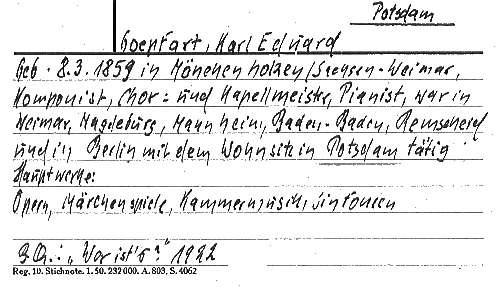 Potsdam
Goepfart, Karl Eduard
Geb. 8.3.1859 in Mönchenholzen/Sachsen-Weimar,
Komponist, Chor- und Kapellmeister, Pianist, war in
Weimar, Magdeburg, Mannheim, Baden-Baden, Remscheid
und in Berlin mit dem Wohnsitz in Potsdam tätig
Hauptwerke:
Opern, Märchenspiele, Kammermusik, Sinfonien
B.Qu.: „Wer ist's?" 1922
Reg. 10. Stichnote. 1. 50. 232 000. A. 803, S. 4062